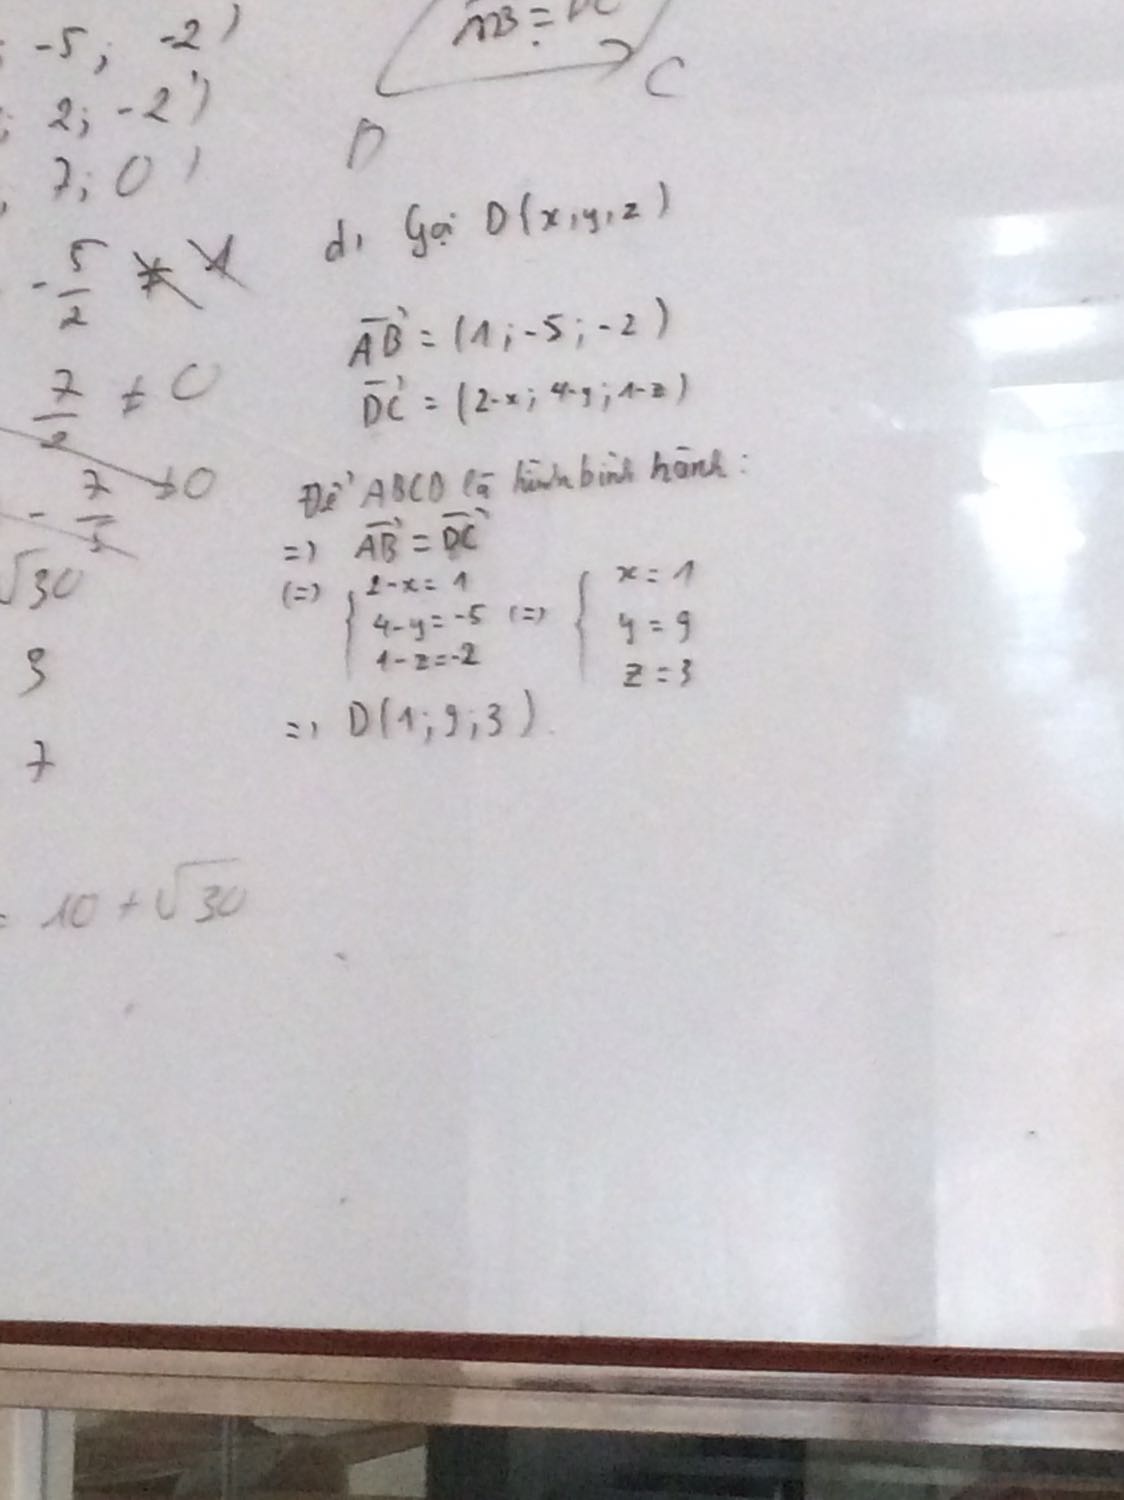 ; -5; -2)
; 2; -2)
; 7; 0)
- 5/2 ≠ 1
7/2 ≠ 0
- 7/5 ≠ 0
√30
3
7
= 10 + √30
AB = DC
D
C
d, Gọi D(x,y,z)
AB = (1; -5; -2)
DC = (2-x; 4-y; 1-z)
Để ABCD là hình bình hành:
=> AB = DC
(=) { 2-x = 1
4-y = -5 (=)
1-z = -2
{ x = 1
y = 9
z = 3
=> D(1; 9; 3).